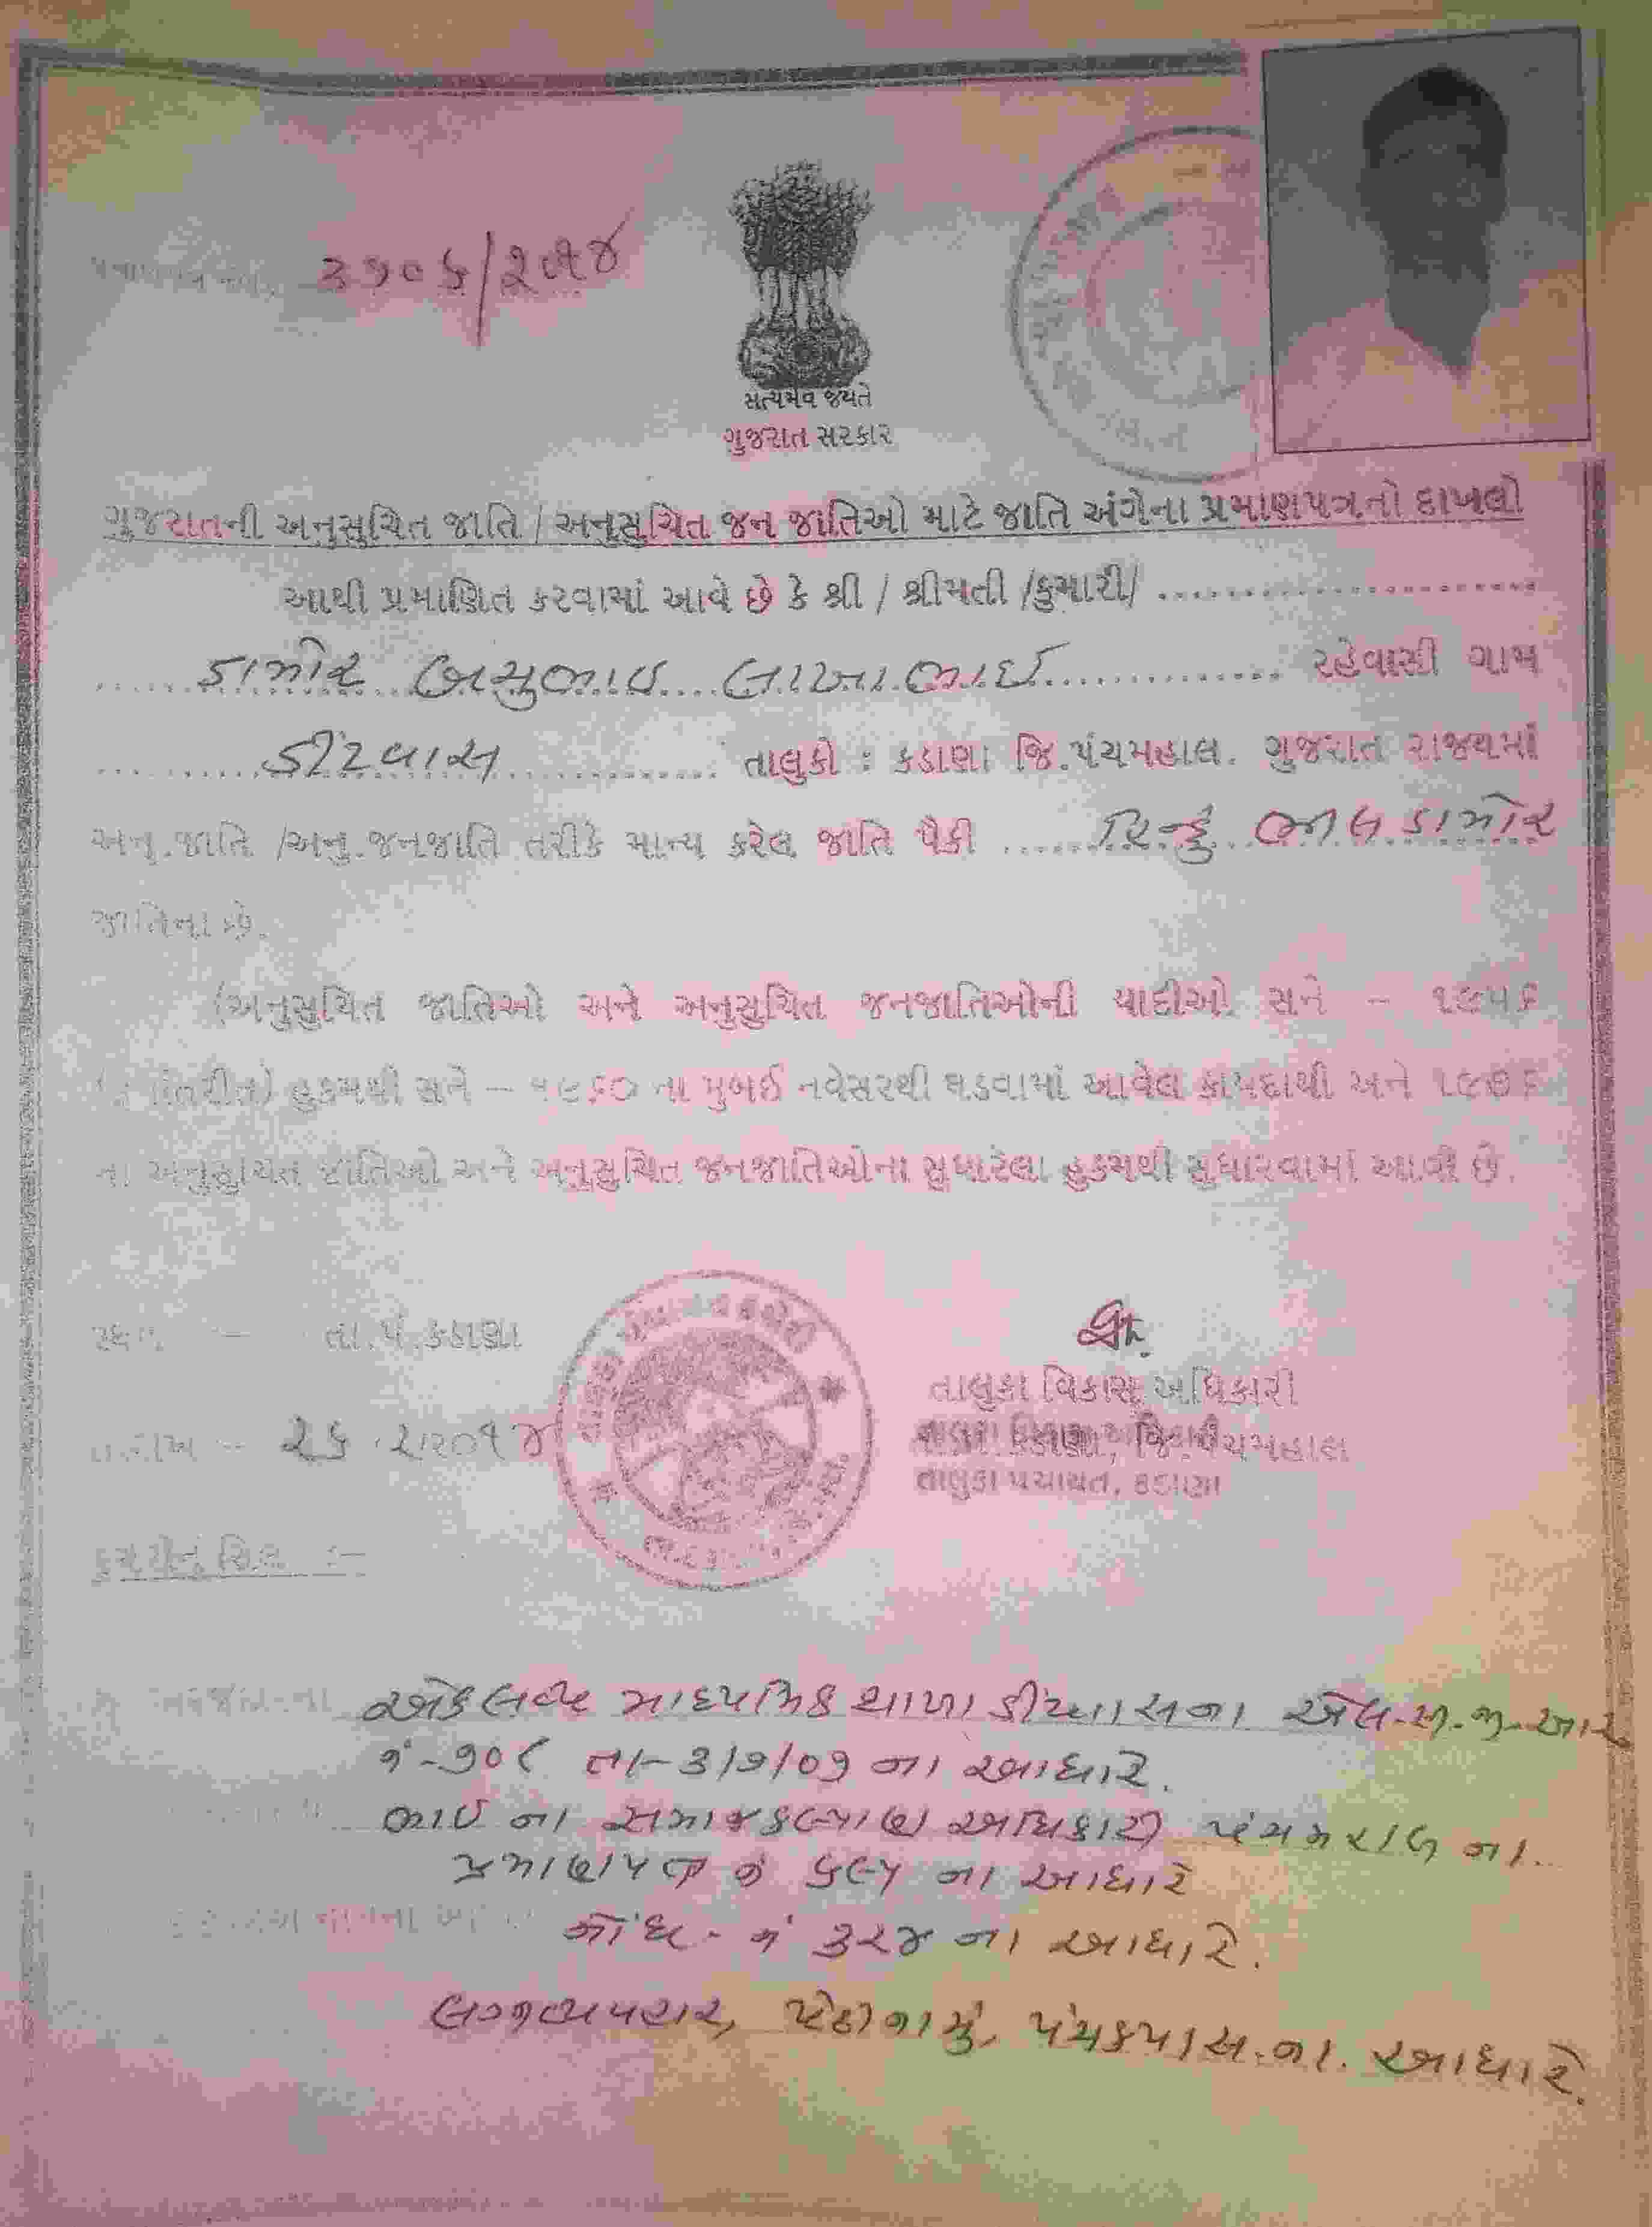 ૩૧૦૬/૨૦૧૪
સત્યમેવ જયતે
ગુજરાત સરકાર
ગુજરાતની અનુસુચિત જાતિ / અનુસુચિત જન જાતિઓ માટે જાતિ અંગેના પ્રમાણપત્રનો દાખલો
આથી પ્રમાણિત કરવામાં આવે છે કે શ્રી / શ્રીમતી /કુમારી/ ......................
ડામોર લાખાભાઈ રહેવાસી ગામ
ડીંટવાસ તાલુકો : કડાણા જિ.પંચમહાલ. ગુજરાત રાજયમાં
અનુ.જાતિ /અનુ.જનજાતિ તરીકે માન્ય કરેલ જાતિ પૈકી ..... હિન્દુ ભીલ ડામોર
જાતિના છે.
(અનુસુચિત જાતિઓ અને અનુસુચિત જનજાતિઓની યાદીઓ સને - ૧૯૫૬
હુકમથી સને – ૧૯૬૦ ના મુબઈ નવેસરથી ઘડવામાં આવેલ કાયદાથી અને ૧૯૭૬
ના અનુસુચિત જાતિઓ અને અનુસુચિત જનજાતિઓના સુધારેલા હુકમથી સુધારવામાં આવી છે.
સ્થળ - તા.પં.કડાણા
તાલુકા વિકાસ અધિકારી
કડાણા, જિ.પંચમહાલ
તાલુકા પંચાયત, કડાણા
તારીખ - ૨૬.૨.૨૦૧૪
કચેરીનું સિલ :-
એકલવ્ય માધ્યમિક શાળા ડીંટવાસના એલ.સી.જી.આર
નં-૭૦૮ તા- ના આધારે.
ભાઈ ના સમાજકલ્યાણ અધિકારી પંચમહાલ ના..
પ્રમાણપત્ર નં ના આધારે
નોંધ - નં ૩૨૪ ના આધારે.
પેઢીનામું, પંચકયાસ.ના. આધારે.